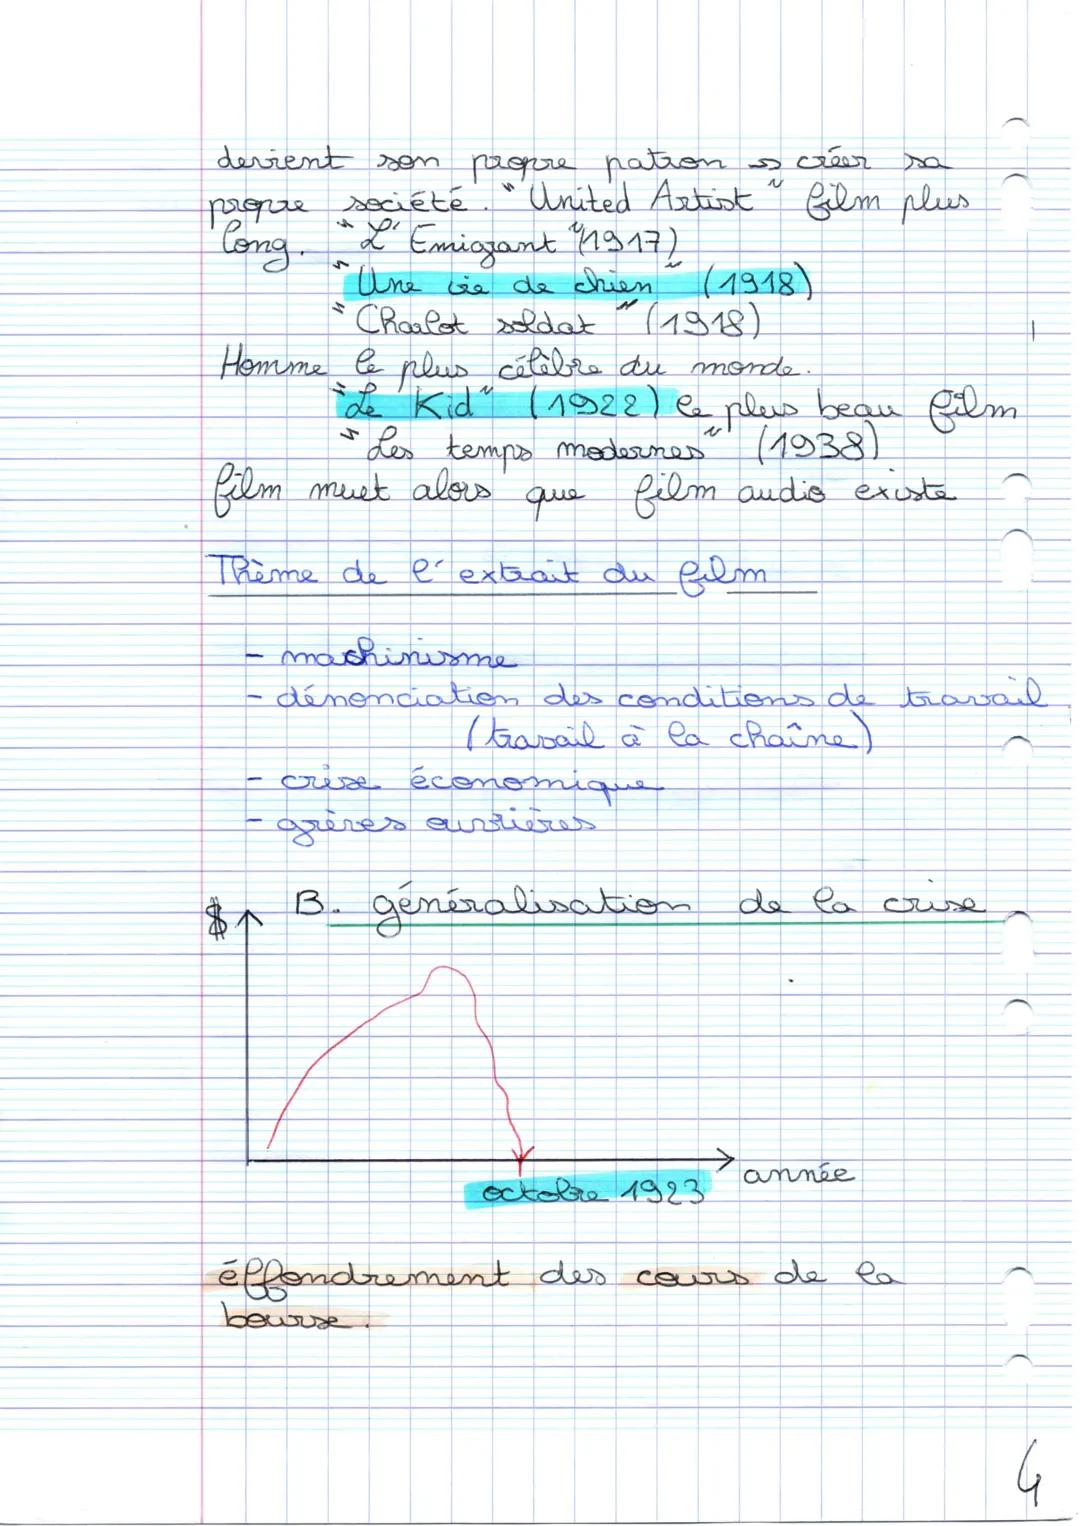 devient son propre patron → créer sa
propre société. "United Artist" film plus
long. "L'Emigrant" (1917)
"Une vie de chien" (1918)
"Charlot soldat" (1918)
Homme le plus célèbre du monde.
"Le Kid" (1922) le plus beau film
"Les temps modernes" (1938)
film muet alors que film audio existe
Thème de l'extrait du film
- machinisme
- dénonciation des conditions de travail
(travail à la chaîne)
- crise économique
- grèves ouvrières
B. généralisation de la crise
$
année
octobre 1923
éffondrement des cours de la
bourse.
4